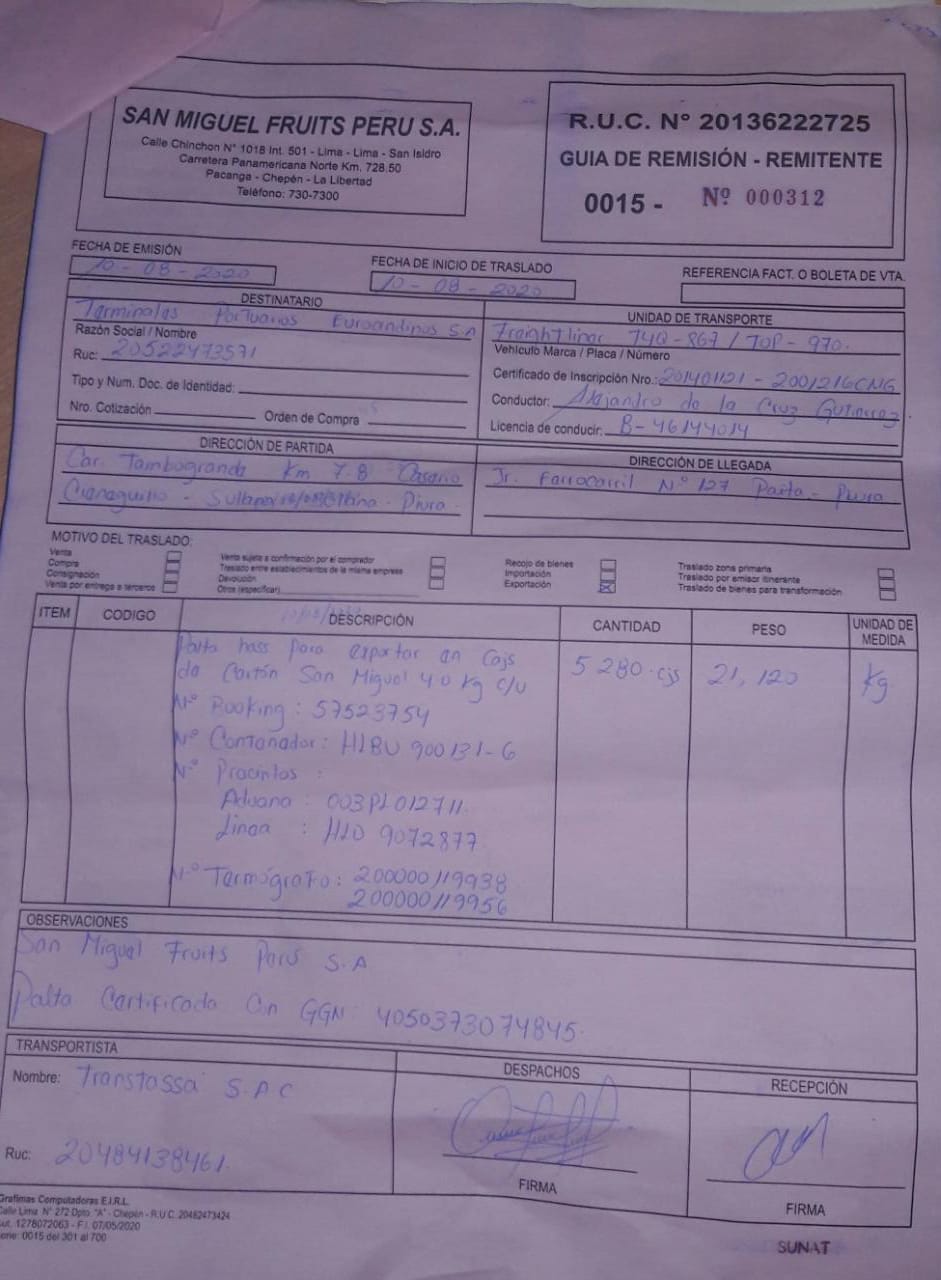 SAN MIGUEL FRUITS PERU S.A.
Calle Chinchon N° 1018 Int. 501 - Lima - Lima - San Isidro
Carretera Panamericana Norte Km. 728.50
Pacanga - Chepén - La Libertad
Teléfono: 730-7300
R.U.C. N° 20136222725
GUIA DE REMISIÓN - REMITENTE
0015 - Nº 000312
FECHA DE EMISIÓN
10 - 08 - 2020
FECHA DE INICIO DE TRASLADO
10 - 08 - 2020
REFERENCIA FACT. O BOLETA DE VTA.
DESTINATARIO
Terminales Portuarios Euroandinos S.A
Razón Social / Nombre
Ruc: 20522473571
Tipo y Num. Doc. de Identidad:
Nro. Cotización
Orden de Compra
UNIDAD DE TRANSPORTE
Freightliner T4Q - 867 / TOP - 970.
Vehículo Marca / Placa / Número
Certificado de Inscripción Nro.: 201401121 - 2001216CNG
Conductor: Alejandro de la Cruz Gutierrez
Licencia de conducir: B - 46144014
DIRECCIÓN DE PARTIDA
Car. Tambogrande Km 7.8 Caserio
Cieneguillo - Sullana - Piura
DIRECCIÓN DE LLEGADA
Jr. Ferrocarril N° 127 Paita - Piura
MOTIVO DEL TRASLADO:
Venta
Compra
Consignación
Venta por entrega a terceros
Venta sujeta a confirmación por el comprador
Traslado entre establecimientos de la misma empresa
Devolución
Otros (especificar)
Recojo de bienes
Importación
Exportación
Traslado zona primaria
Traslado por emisor itinerante
Traslado de bienes para transformación
ITEM CODIGO DESCRIPCIÓN CANTIDAD PESO UNIDAD DE MEDIDA
Palta hass para exportar en Cajs 5 280 cjs 21,120 Kg
de Cartón San Miguel 4.0 kg c/u
N° Booking : 57523754
N° Contenedor : HLBU 900131-6
N° Precintos :
Aduana : 003PL012711
Linea : HLD 9072877
N° Termógrafo : 200000119938
200000119956
OBSERVACIONES
San Miguel Fruits Perú S.A
Palta Certificada Con GGN: 4050373074845
TRANSPORTISTA
Nombre: Transtassa S.A.C
Ruc: 20484138461
DESPACHOS
FIRMA
RECEPCIÓN
FIRMA
Grafimas Computadoras E.I.R.L.
Calle Lima N° 272 Dpto. "A" - Chepén - R.U.C. 20482473424
Aut. 1278072063 - F.I. 07/05/2020
Serie: 0015 del 301 al 700
SUNAT